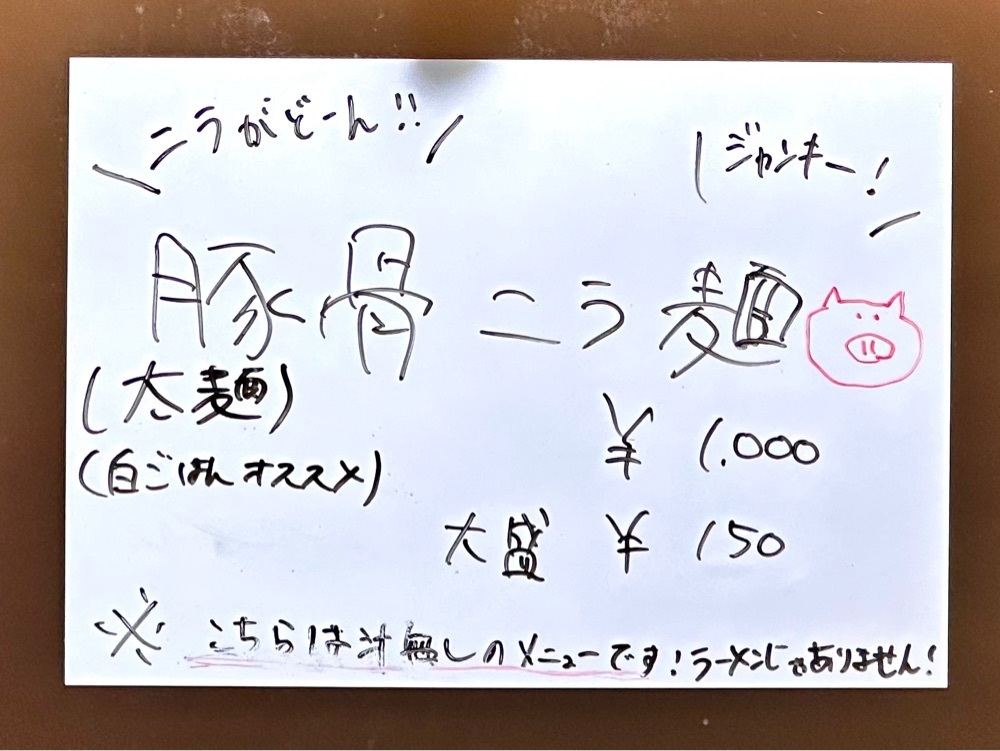 \ニラがどーん!!/
\ジャンキー!/
豚骨ニラ麺
(太麺)
(白ごはんオススメ)
¥1.000
大盛 ¥150
※こちらは汁無しのメニューです!ラーメンじゃありません!